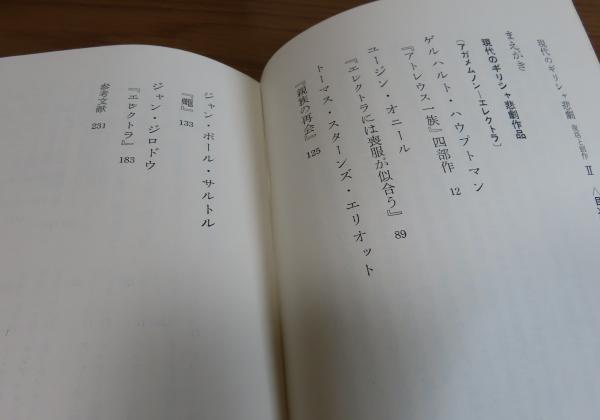 現代のギリシャ悲劇 復活と創作 Ⅱ
まえがき
現代のギリシャ悲劇作品
(アガメムノン—エレクトラ)
ゲルハルト・ハウプトマン
『アトレウス一族』四部作 12
ユージン・オニール
『エレクトラには喪服が似合う』 89
トーマス・スターンズ・エリオット
『親族の再会』 125
ジャン・ポール・サルトル
『蠅』 133
ジャン・ジロドウ
『エレクトラ』 183
参考文献 231